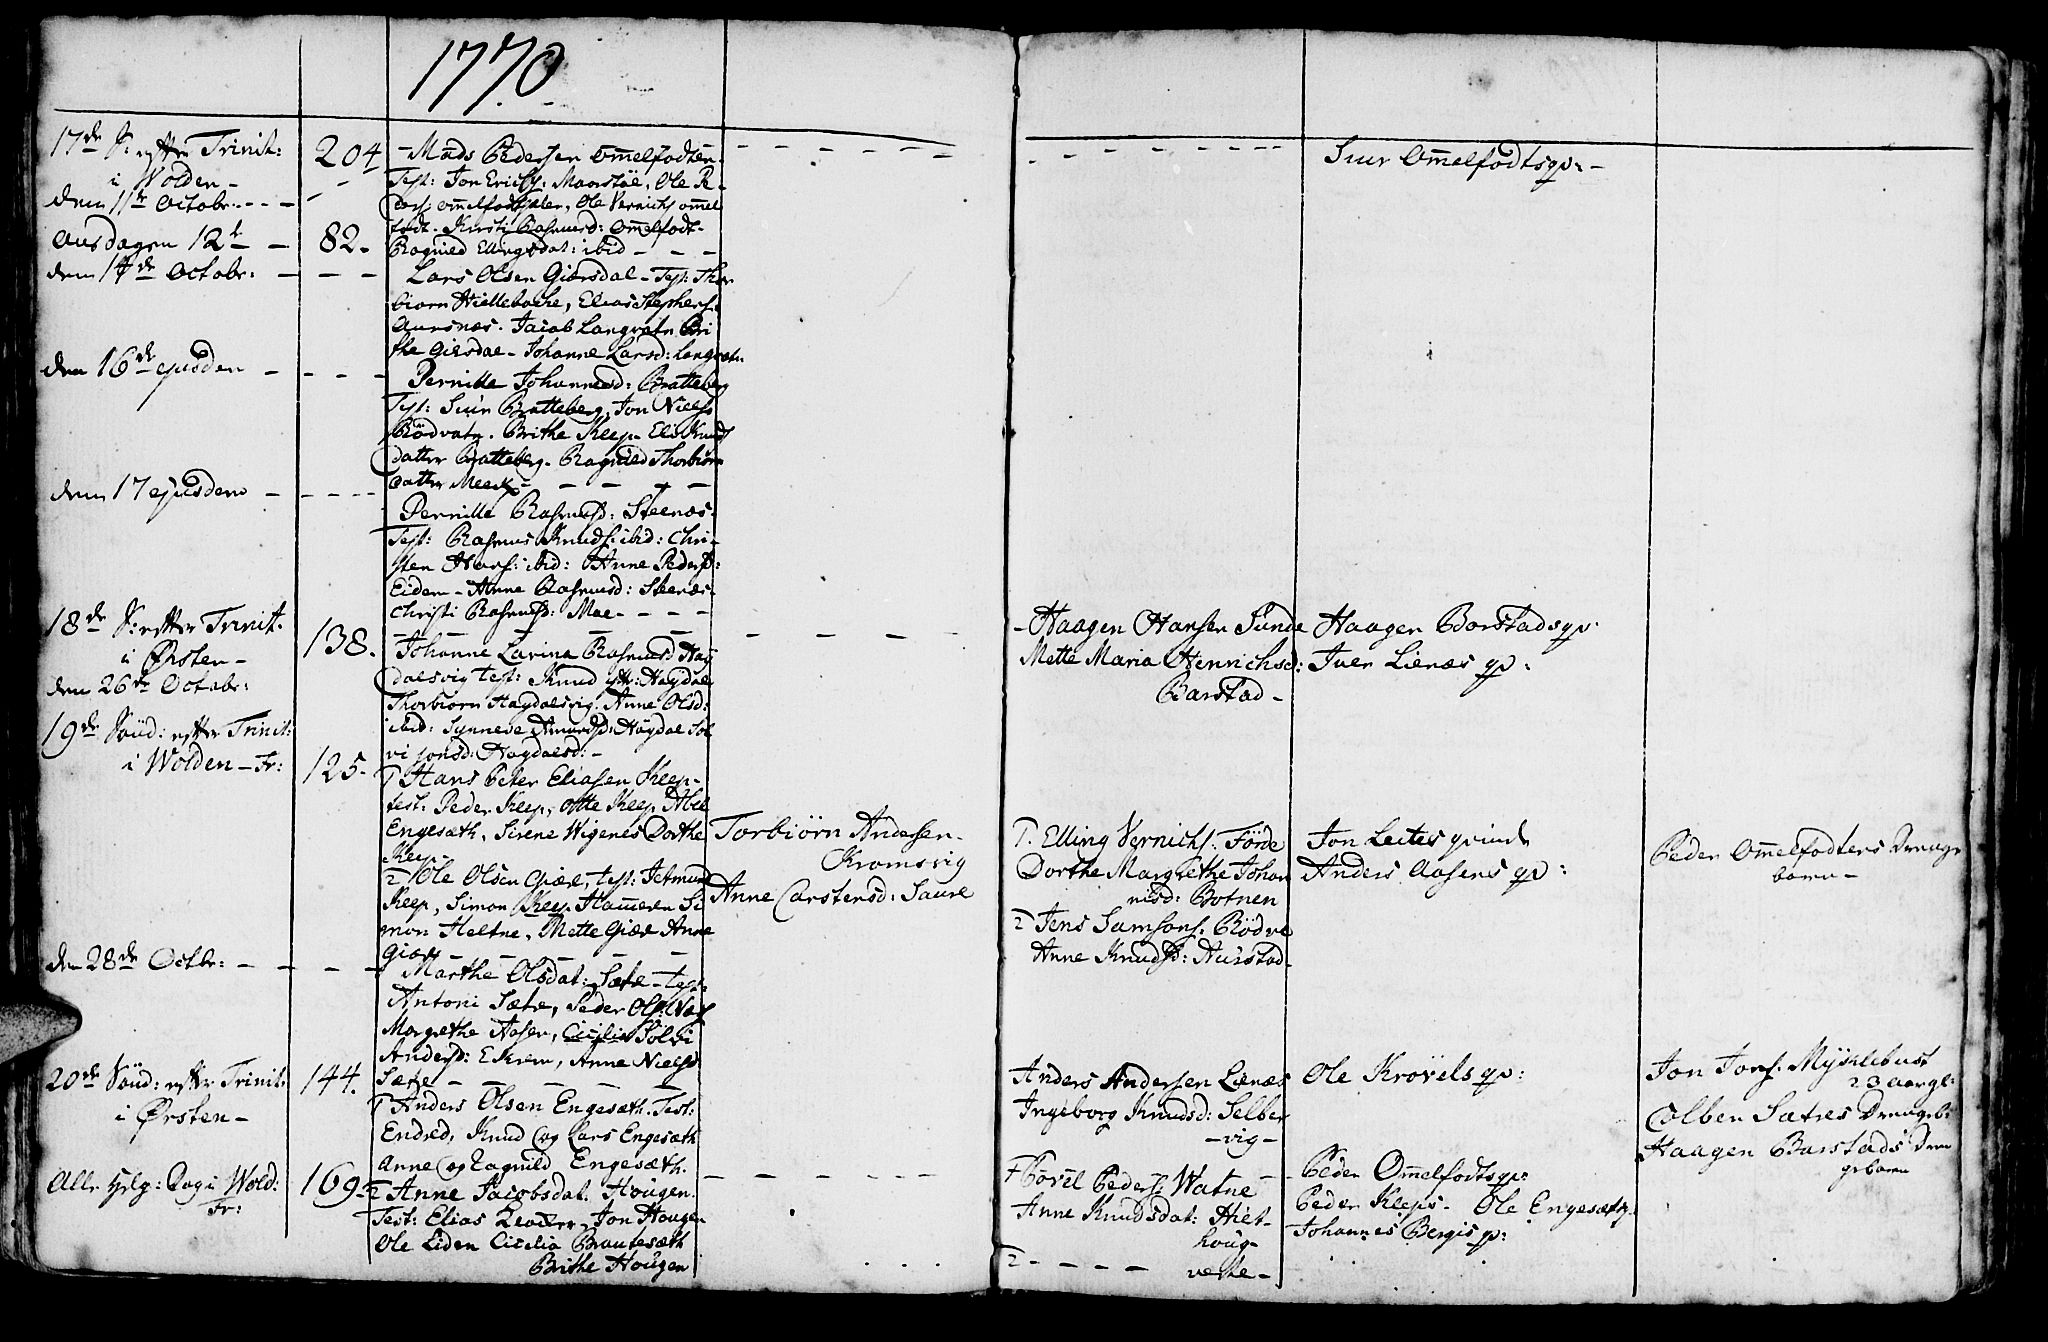 1770
17de S: efter Trinit:
i Wolden -
den 11te Octobr: - - -
Ausdagen 12te -
den 14de Octobr: -
den 16de ejusdem -
dem 17 ejusdem -
18de S: efter Trinit.
i Ørsten -
den 26de Octobr:
19de Sönd: efter Trinit:
i Wolden - Fr:
den 28de Octbr: -
20de Sönd: efter Trinit:
i Ørsten -
Alle Helg: Dag i Wold:
Fr:
204
82 -
138.
125 -
144.
169 -
- Mads Pedersen Ommelfodten -
Test: Jon Erichs: Maarstöl, Ole Pe-
ders: Ommelfodt, Ole Vernichs Ommel
fodt. Kirsti Rasmusd: Ommelfodt -
Ragnild Ellingsdat: ibid - - -
Lars Olsen Giersdal - Test: Thor
biorn Hiellebache, Elias Stephens:
Aursnæs. Jacob Langvatn Bri
the Giersdal - Johanne Larsd: Langvatn
Pernille Johannesd: Bratteberg
Test: Siur Bratteberg, Jon Niels:
Rödvatn. Brithe Kleep. Eli Knuds
datter Bratteberg. Ragnild Thorbiörn
datter Meek - - - -
Pernille Rasmusd: Steenæs -
Test: Rasmus Knuds: ibid: Chri-
sten Hans: ibid: Anne Pedersd:
Eidem - Anne Rasmusd: Steenæs -
Christi Rasmusd: Moe - - - -
Johanne Lavina Rasmusd Hag
dalsvig test: Knud Hagdal
Thorbiorn Hagdalsvig. Anne Olsd:
ibid: Synneve Amundsd: Hagdal Sol
vi Jonsd: Hagdalsd: -
1 Hans Peter Eliasen Kleep -
test: Peder Kleep, Otte Kleep Abel
Engesæth, Sirene Wigenes Dorthe
Kleep -
2 Ole Olsen Giære, test: Jetmund
Kleep, Simon Kleep. Hameren Si
mon Heltne, Mette Giær Anne
Giær - - - -
Marthe Olsdat: Sæte - test:
Antoni Sæte, Peder Ols: Næs
Margrethe Aasen, Cicilia Solvi
Andersd: Ekrem, Anne Niels
Sæte - - - -
1 Anders Olsen Engesæth. Test:
Endred, Knud og Lars Engesæth
Anne og Ragnild Engesæth.
2 Anne Jacobsdat: Hougen.
Test: Elias Jon Hougen
Ole Liden Cicilia Brautesæth
Brithe Hougen
Torbiörn Andersen -
Kromsvig
Anne Carstensd: Saure
- Haagen Hansen Sunde
Mette Maria Henrichsd:
Barstad -
1. Elling Vernichs: Förde
Dorthe Margrethe Johan
nisd: Botnen
2 Jens Samsons: Rödve
Anne Knudsd: Aurstad -
Anders Andersen Lienæs
Ingeborg Knudsd: Selber
- vig -
1 Povel Peders: Watne
Anne Knudsdat: Hiet-
houg -
2 - - - - værke -
Siur Ommelfodts qv: -
Haagen Barstads qv:
Iver Lienæs qv:
Jon Leites qvinde
Anders Aasens qv:
Ole Krövels qv:
Peder Ommelfodts qv:
Peder Kleps - Ole Engesæth
Johannes Bergis qv:
Peder Ommelfodters Drenge
barn -
Jon Jons: Myklebust
23 aar gl:
Colben Satres Drengeb:
Haagen Barstads Dren
gebarn